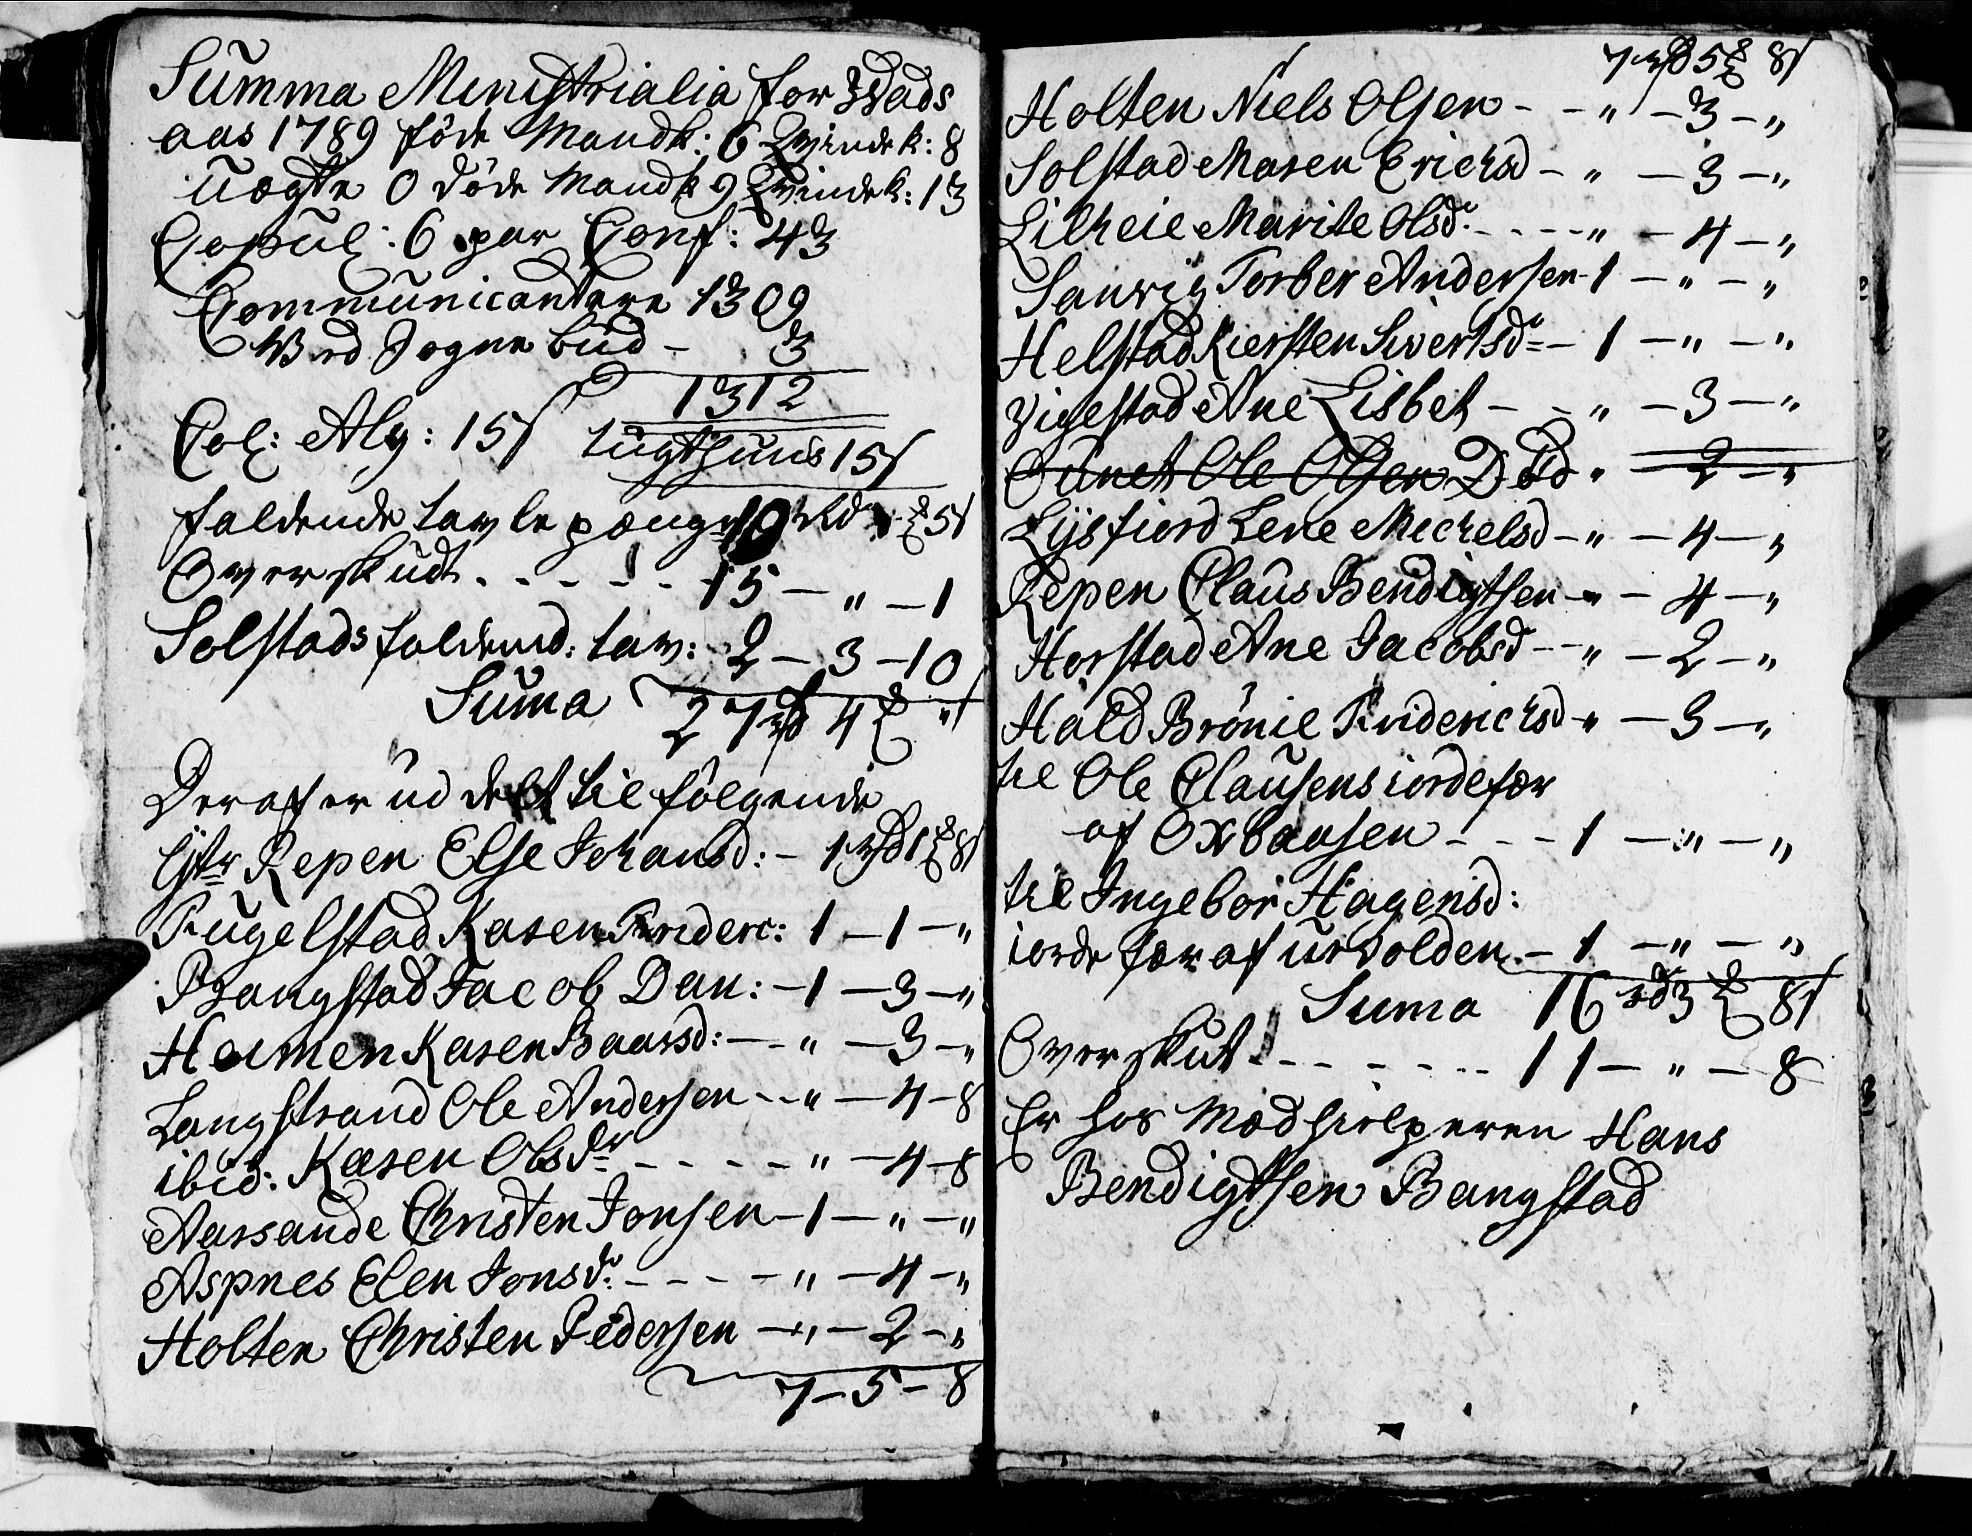 Summa Ministrialia for Hvads
aas 1789 föde Mandk: 6 Qvindek: 8
uægte 0 döde Mandk 9 Qvindek: 13
Copul: 6 par Conf: 43
Communicantere 1309
Ved Sogne bud - 3
1312
Col: Alg: 15 s tugthuus 15 s
faldende tavle pænge 10 Rd ʺ 5 s
Overskudt - - - - - 15 - ʺ - 1
Solstads faldend: tav: 2 - 3 - 10
Suma 27 rd 4 ʺ s
Deraf er ud delt til fölgende
Repen Else Johansd: - 1 rd 1 8 s
Kugelstad Karen Friderc: 1 - 1 - ʺ
Bangstad Jacob Dan: - 1 - 3 - ʺ
Heimen Karen Baarsd: - - ʺ - 3 - ʺ
Langstrand Ole Andersen - - ʺ - 4 - 8
ibid: Karen Olsdr - - - - ʺ - 4 - 8
Aarsande Christen Jonsen - 1 - ʺ - ʺ
Aspnes Elen Jonsd: - - - - ʺ - 4 - ʺ
Holten Christen Pedersen - ʺ - 2 - ʺ
7 - 5 - 8
7 rd 5 8 s
Holten Niels Olsen - - ʺ - 3 - ʺ
Solstad Maren Erichsd - ʺ - 3 - ʺ
Lilheie Marite Olsd: - - - - ʺ - 4 - ʺ
Sanvig Torber Andersen - 1 - ʺ - ʺ
Helstad Kiersten Sivertsd - 1 - ʺ - ʺ
Vigestad Ane Lisbet - - ʺ - 3 - ʺ
Ole Olsen Död ʺ - 2 - ʺ
Lysfiord Lene Mechelsd - ʺ - 4 - ʺ
Repen Claus Bendigtsen - ʺ - 4 - ʺ
Horstad Ane Jacobsd - - ʺ - 2 - ʺ
Hald Brönil Friderichsd - ʺ - 3 - ʺ
til Ole Clausens iordefær
af Oxbaasen - - - 1 - ʺ - ʺ
til Ingebor Hagensd:
iorde fær af urvolden - 1 - ʺ - ʺ
Suma 16 rd 3 8 s
Overskut - - - - - - 11 - ʺ - 8
Er hos Medhielperen Hans
Bendigtsen Bangstad